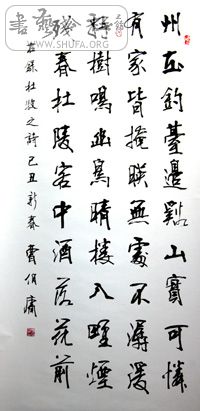 州在釣臺邊谿山實可憐
有家皆掩映無處不潺湲
好樹鳴幽鳥晴樓入野煙
殘春杜陵客中酒落花前
右錄杜牧之詩己丑新春曹
WWW.SHUFA.ORG